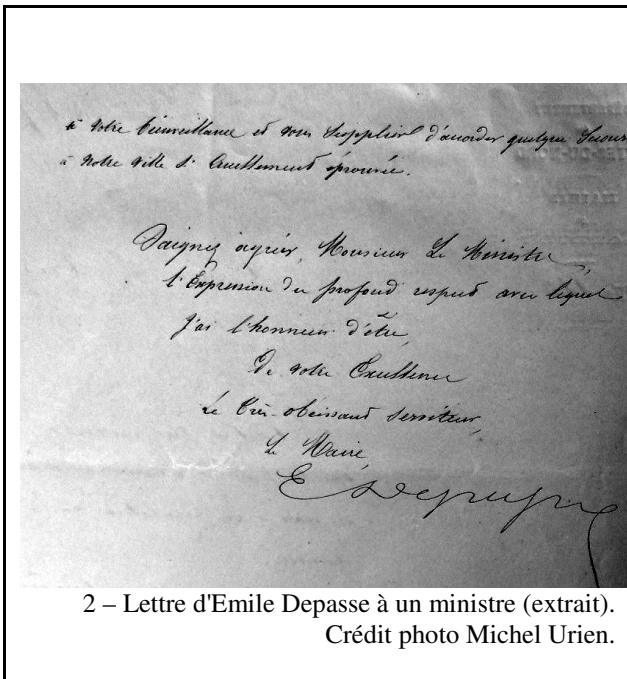 à votre bienveillance et vous supplier d'accorder quelque secours
à notre ville si cruellement éprouvée.
Daignez agréer, Monsieur Le Ministre,
l'Expression du profond respect avec lequel
j'ai l'honneur d'être,
De votre Excellence
Le très-obéissant serviteur,
Le Maire,
E Depasse
2 – Lettre d'Emile Depasse à un ministre (extrait).
Crédit photo Michel Urien.